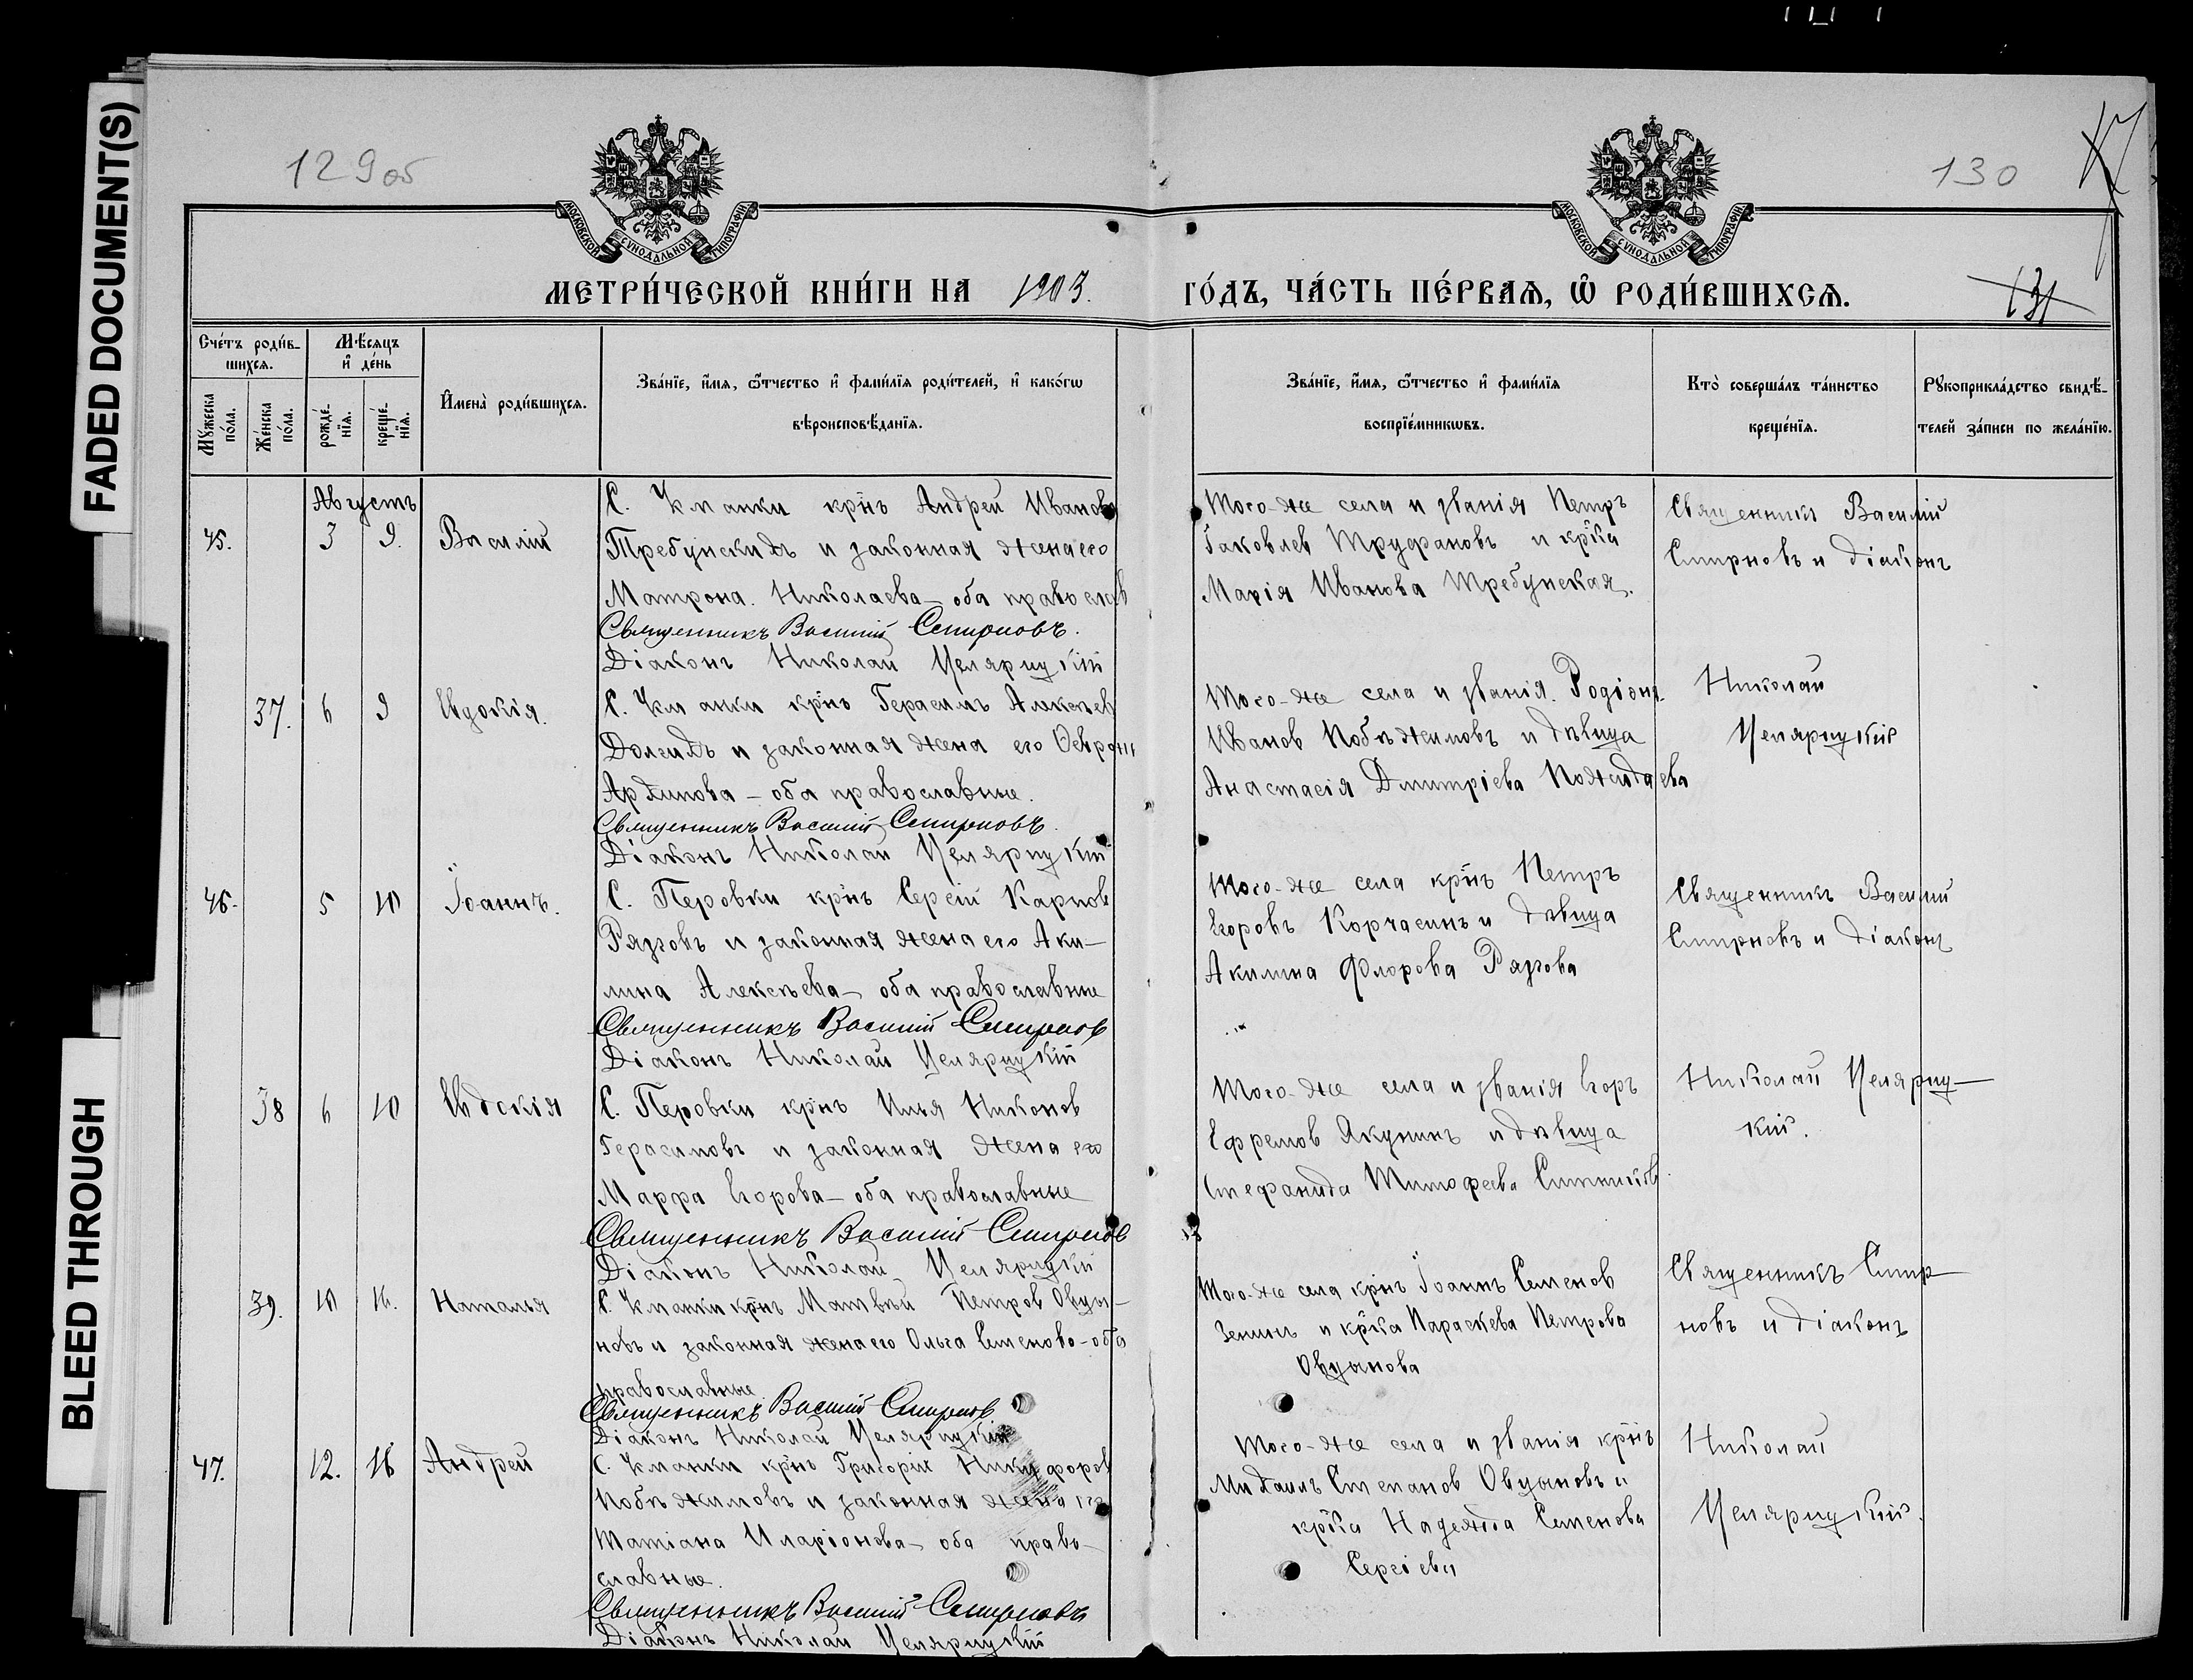 FADED DOCUMENT(S)
BLEED THROUGH
129об
130
131
МОСКОВСКОЙ СѴНОДАЛЬНОЙ ТИПОГРАФІИ
МОСКОВСКОЙ СѴНОДАЛЬНОЙ ТИПОГРАФІИ
МЕТРИ́ЧЕСКОЙ КНИ́ГИ НА 1903. ГО́ДЪ, ЧА́СТЬ ПЕ́РВАѦ, Ѡ РОДИ́ВШИХСѦ.
Сче́тъ роди́в-
шихсѧ.
Мꙋ́жеска по́ла.
Же́нска по́ла.
Мѣ́сѧцъ
и҆ де́нь
рожде́-
нїѧ.
креще́-
нїѧ.
И҆мена̀ роди́вшихсѧ.
Зва́нїе, и҆́мѧ, ѻ҆́тчество и҆ фами́лїѧ роди́телей, и҆ како́гѡ
вѣроисповѣ́данїѧ.
Зва́нїе, и҆́мѧ, ѻ҆́тчество и҆ фами́лїѧ
воспрїе́мникѡвъ.
Кто̀ соверша́лъ та́инство
креще́нїѧ.
Рꙋкоприкла́дство свидѣ́-
телей за́писи по жела́нїю.
Августъ
45. 3 9. Василій
С. Уманки крнъ Андрей Иванов
Требунскихъ и законная жена его
Матрона Николаева – оба православ
Священникъ Василій Смирновъ.
Діаконъ Николай Целярицкій
Того-же села и званія Петръ
Іаковлев Труфановъ и крка
Марія Иванова Требунская.
Священникъ Василій
Смирновъ и діаконъ
Николай
Целярицкій
37. 6 9 Евдокія.
С. Уманки крнъ Герасимъ Алексѣев
Долгихъ и законная жена его Февронія
Архипова – оба православные.
Священникъ Василій Смирновъ.
Діаконъ Николай Целярицкій
Того-же села и званія Родіонъ
Иванов Побѣжимовъ и дѣвица
Анастасія Дмитріева Пожидаева
46. 5 10 Іоаннъ.
С. Перовки крнъ Сергій Карпов
Рязговъ и законная жена его Аки-
лина Алексѣева – оба православные
Священникъ Василій Смирнов
Діаконъ Николай Целярицкій
Того-же села крнъ Петръ
Егоровъ Корчагинъ и дѣвица
Акилина Флорова Рязгова
Священникъ Василій
Смирновъ и діаконъ
Николай Целяриц-
кій.
38 6 10 Евдокія
С. Перовки крнъ Илья Никонов
Герасимовъ и законная жена его
Марфа Егорова – оба православные
Священникъ Василій Смирнов
Діаконъ Николай Целярицкій
Того-же села и званія Егоръ
Ефремов Якунинъ и дѣвица
Стефанида Тимофеева Ситников
39. 10 16. Наталья
С. Уманки крнъ Матвѣй Петров Овцы-
новъ и законная жена его Ольга Семенова – оба
православные.
Священникъ Василій Смирнов
Діаконъ Николай Целярицкій
Того-же села крнъ Іоаннъ Семенов
Зенинъ и крка Параскева Петрова
Овцынова
Священникъ Смир-
новъ и діаконъ
Николай
Целярицкій.
47. 12. 16 Андрей
С. Уманки крнъ Григорій Никифоров
Побѣжимовъ и законная жена его
Татіана Иларіонова – оба право-
славные.
Священникъ Василій Смирновъ
Діаконъ Николай Целярицкій
Того-же села и званія крнъ
Михаилъ Степанов Овцыновъ и
крка Надежда Семенова
Сергіева